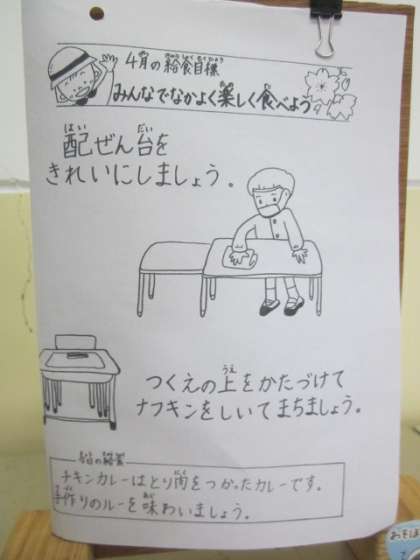 4月の給食目標
みんなでなかよく楽しく食べよう
配ぜん台を
きれいにしましょう。
つくえの上をかたづけて
ナフキンをしいてまちましょう。
今日の給食
チキンカレーはとり肉をつかったカレーです。
手作りのルーを味わいましょう。